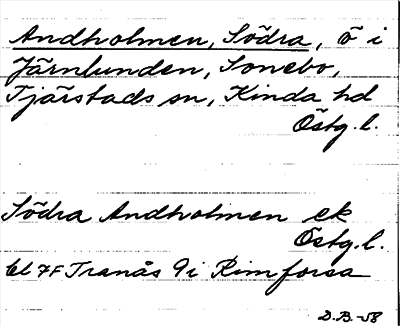 Andholmen, Södra, ö i
Järnlunden, Sonebo,
Tjärstads sn, Kinda hd
Östg. l.
Södra Andholmen ek
Östg. l.
bl 7F Tranås 9i Rimforsa
D.B. -58